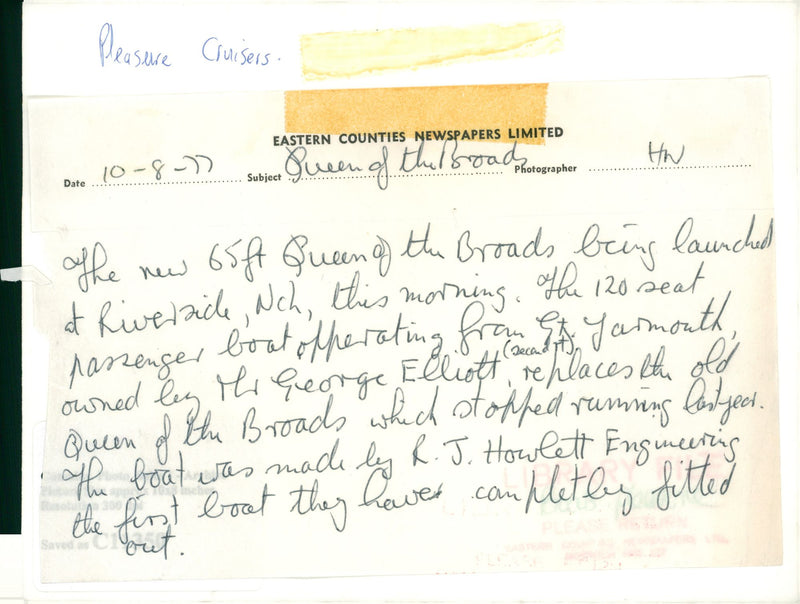 Pleasure Cruisers.
EASTERN COUNTIES NEWSPAPERS LIMITED
Date 10-8-77 Subject Queen of the Broads Photographer HW
The new 65ft Queen of the Broads being launched
at Riverside, Nch, this morning. The 120 seat
passenger boat opperating from Gt. Yarmouth,
owned by Mr George Elliott (second t), replaces the old
Queen of the Broads which stopped running last year.
The boat was made by R. J. Howlett Engineering
the first boat they have completley fitted
out.
LIBRARY FILE
PLEASE RETURN
EASTERN COUNTIES NEWSPAPERS LTD.
Resolution 300
Saved as